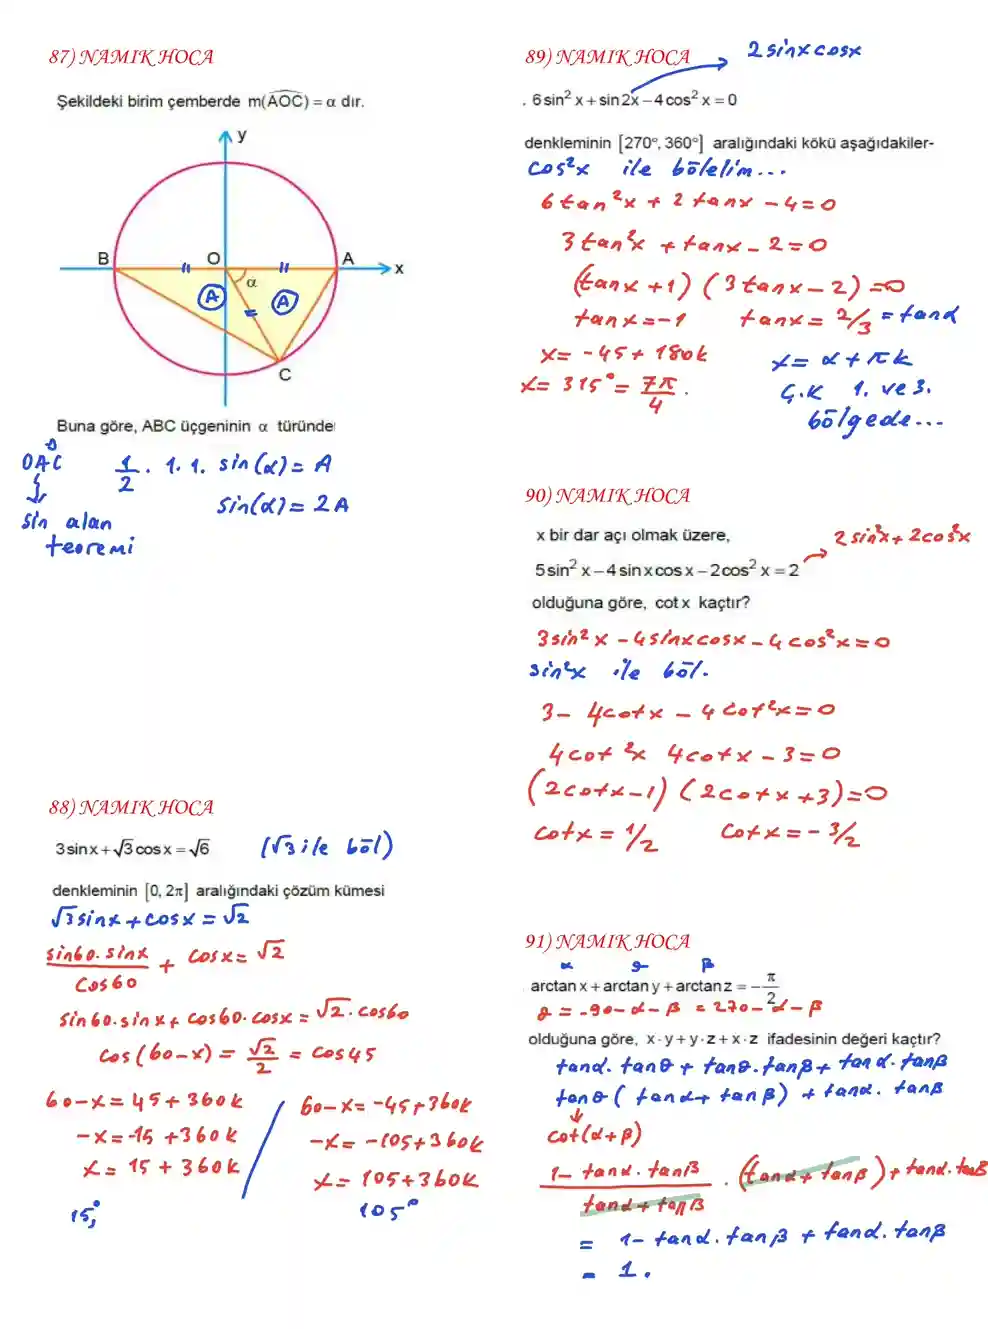 87) NAMIK HOCA
Şekildeki birim çemberde m(AOC) = α dır.
y
B
O
A
x
α
A
A
C
Buna göre, ABC üçgeninin α türünde
OAC
1/2 . 1.1. sin(α) = A
sin(α) = 2A
sin alan
teoremi
88) NAMIK HOCA
3sinx + √3cosx = √6 (√3 ile böl)
denkleminin [0, 2π] aralığındaki çözüm kümesi
√3sinx + cosx = √2
sin60.sinx/cos60 + cosx = √2
sin60.sinx + cos60.cosx = √2.cos60
cos(60-x) = √2/2 = cos45
60-x = 45+360k
-x = -15+360k
x = 15+360k
15°,
60-x = -45+360k
-x = -105+360k
x = 105+360k
105°
89) NAMIK HOCA
2sinxcosx
. 6sin²x + sin2x – 4cos²x = 0
denkleminin [270°, 360°] aralığındaki kökü aşağıdakiler-
cos²x ile bölelim...
6tan²x + 2tanx - 4 = 0
3tan²x + tanx - 2 = 0
(tanx+1) (3tanx-2) = 0
tanx = -1 tanx = 2/3 = tanα
x = -45+180k x = α+πk
x = 315° = 7π/4 . Ç.K 1. ve 3.
bölgede...
90) NAMIK HOCA
x bir dar açı olmak üzere,
2sin²x + 2cos²x
5sin²x – 4sinxcosx – 2cos²x = 2
olduğuna göre, cotx kaçtır?
3sin²x - 4sinxcosx - 4cos²x = 0
sin²x ile böl.
3 - 4cotx - 4cot²x = 0
4cot²x 4cotx - 3 = 0
(2cotx-1) (2cotx+3) = 0
cotx = 1/2 cotx = -3/2
91) NAMIK HOCA
α θ β
arctanx + arctany + arctanz = -π/2
θ = -90-α-β = 270-α-β
olduğuna göre, x·y + y·z + x·z ifadesinin değeri kaçtır?
tanα.tanθ + tanθ.tanβ + tanα.tanβ
tanθ(tanα+tanβ) + tanα.tanβ
cot(α+β)
1-tanα.tanβ/tanα+tanβ . (tanα+tanβ) + tanα.tanβ
= 1-tanα.tanβ + tanα.tanβ
= 1.